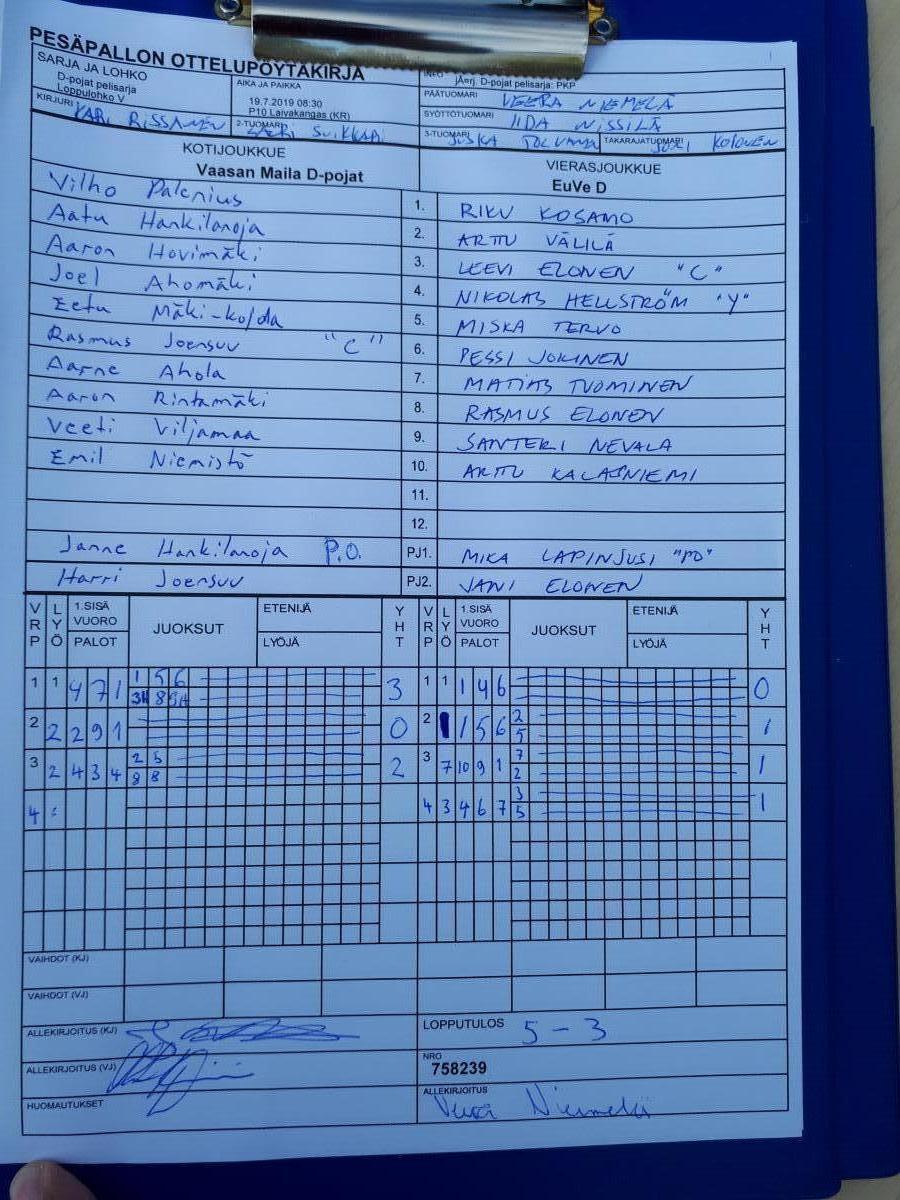 PESÄPALLON OTTELUPÖYTÄKIRJA
SARJA JA LOHKO
D-pojat pelisarja
Loppulohko V
AIKA JA PAIKKA
19.7.2019 08:30
P10 Laivakangas (KR)
INFO
jÄrj. D-pojat pelisarja: PKP
PÄÄTUOMARI VEERA NIEMELÄ
SYÖTTÖTUOMARI IIDA NISSILÄ
KIRJURI KARI RISSANEN
2-TUOMARI
3-TUOMARI
TAKARAJATUOMARI KOLONEN
KOTIJOUKKUE
Vaasan Maila D-pojat
VIERASJOUKKUE
EuVe D
Vilho Palenius 1. RIKU KOSAMO
Aatu Hankilanoja 2. ARTTU VÄLILÄ
Aaron Hovimäki 3. LEEVI ELONEN "C"
Joel Ahomäki 4. NIKOLAS HELLSTRÖM "Y"
Eetu 5. MISKA TERVO
Rasmus Joensuu "C" 6. PESSI JOKINEN
Aarne Ahola 7. MATIAS TUOMINEN
Aaron Rintamäki 8. RASMUS ELONEN
Veeti Viljamaa 9. SANTERI NEVALA
Emil Niemistö 10. ARTTU KALASNIEMI
11.
12.
Janne Hankilanoja P.O. PJ1. MIKA "PO"
Harri Joensuu PJ2. JANI ELONEN
VRP LYÖ 1.SISÄ VUORO PALOT JUOKSUT ETENIJÄ LYÖJÄ YHT VRP LYÖ 1.SISÄ VUORO PALOT JUOKSUT ETENIJÄ LYÖJÄ YHT
1 1 4 7 1 1 5 6 3 1 1 1 4 6 0
3H 8
2 2 2 9 1 0 2 1 5 6 2 1
5
3 2 4 3 4 2 5 2 3 7 10 9 1 7 1
9 8 2
4 4 3 4 6 7 3 1
5
VAIHDOT (KJ)
VAIHDOT (VJ)
ALLEKIRJOITUS (KJ)
LOPPUTULOS 5 - 3
ALLEKIRJOITUS (VJ)
NRO
758239
HUOMAUTUKSET
ALLEKIRJOITUS
Veera Niemelä